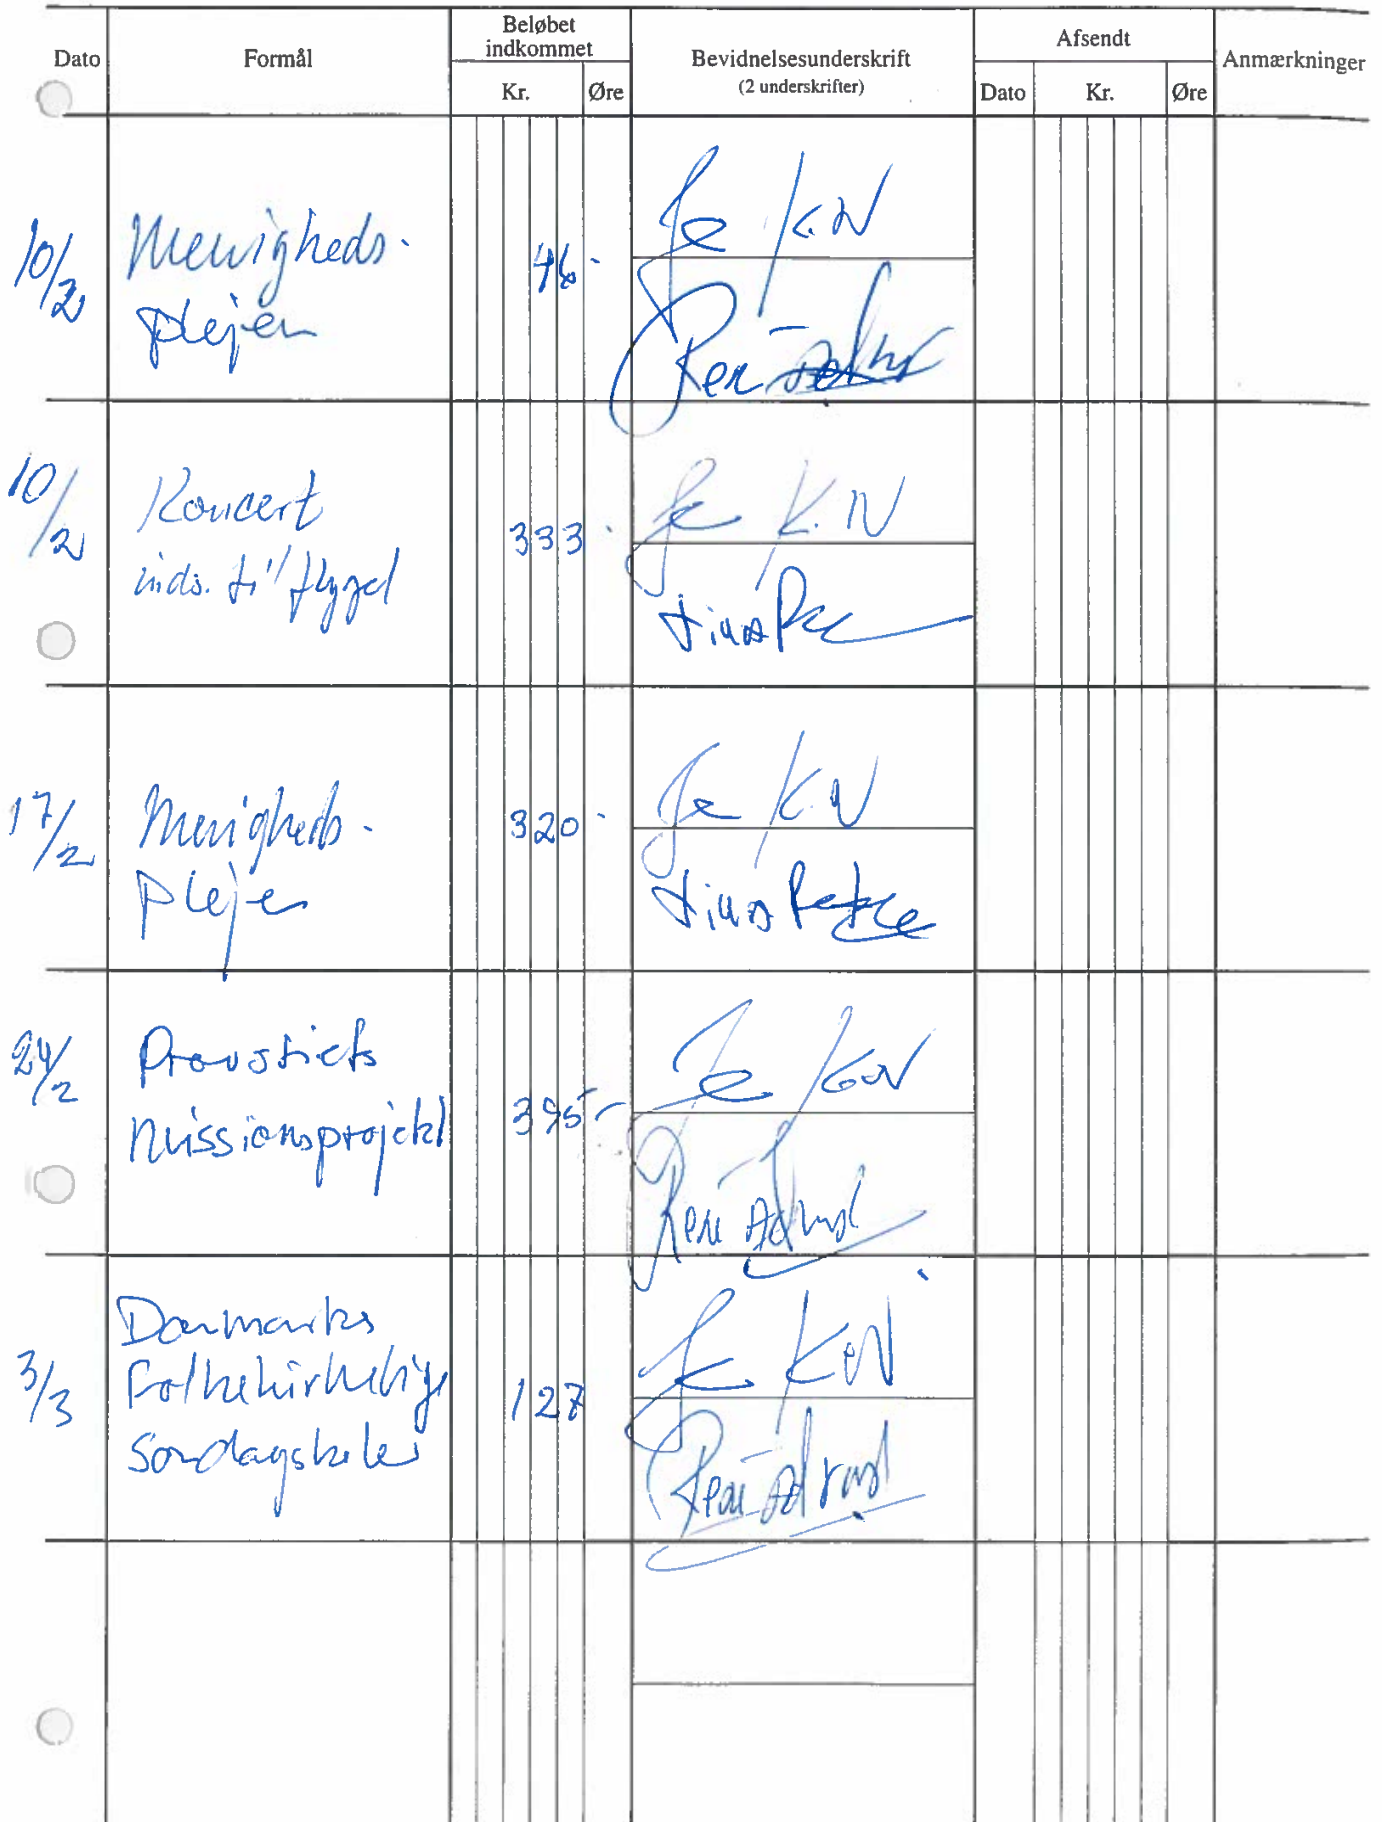 Dato
Formål
Beløbet
indkommet
Kr.
Øre
Bevidnelsesunderskrift
(2 underskrifter)
Afsendt
Dato
Kr.
Øre
Anmærkninger
10/2
Menigheds-
plejen
46-
10/2
Koncert
inds. til flygel
333-
17/2
Menigheds-
plejen
320-
24/2
Provstiets
missionsprojekt
395-
3/3
Danmarks
Folkekirkelige
Søndagsskoler
127